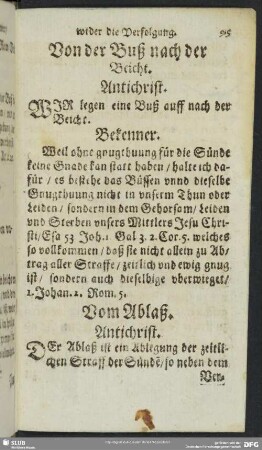 wider die Verfolgung. 95
Von der Buß nach der
Beicht.
Antichrist.
WJR legen eine Buß auff nach der
Beicht.
Bekenner.
Weil ohne gnugthuung für die Sünde
keine Gnade kan statt haben / halte ich da-
für / es bestehe das Büssen vnnd dieselbe
Gnugthuung nicht in vnserm Thun oder
Leiden / sondern in dem Gehorsam / Leiden
vnd Sterben vnsers Mittlers Jesu Chri-
sti / Esa 53 Joh. 1 Gal 3. 2. Cor. 5. welches
so vollkommen / daß sie nicht allein zu Ab-
trag aller Straffe / zeitlich vnd ewig gnug
ist / sondern auch dieselbige vberwieget /
1. Johan. 2. Rom. 5.
Vom Ablaß.
Antichrist.
DEr Ablaß ist ein Ablegung der zeitli-
chen Straff der Sünde / so neben dem
Ver-
SLUB
DFG